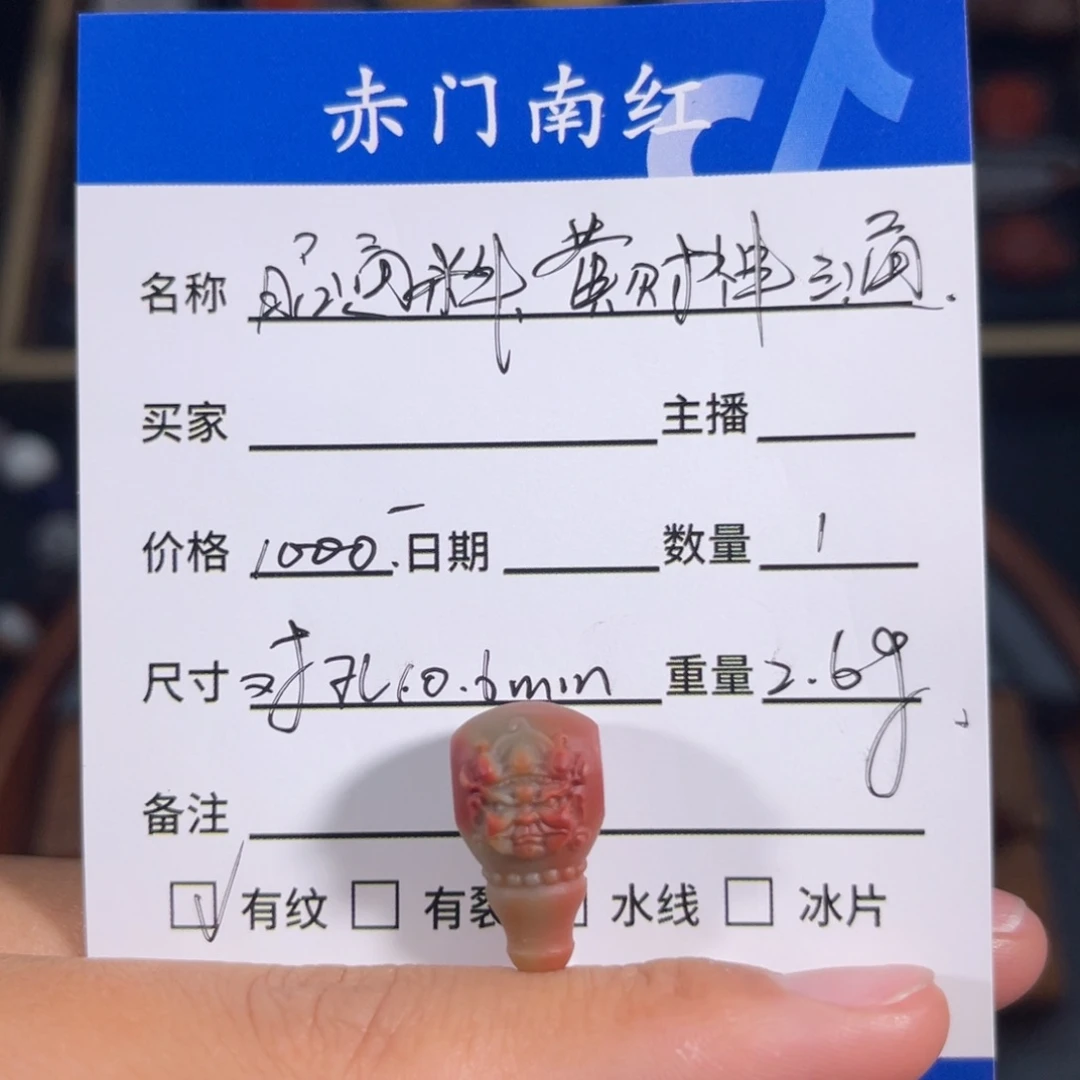 赤门南红
名称 保通料,黄财神三通.
买家 主播
价格 1000.- 日期 数量 1
尺寸 对孔:0.6min 重量 2.6g
备注
√ 有纹 有裂 水线 冰片